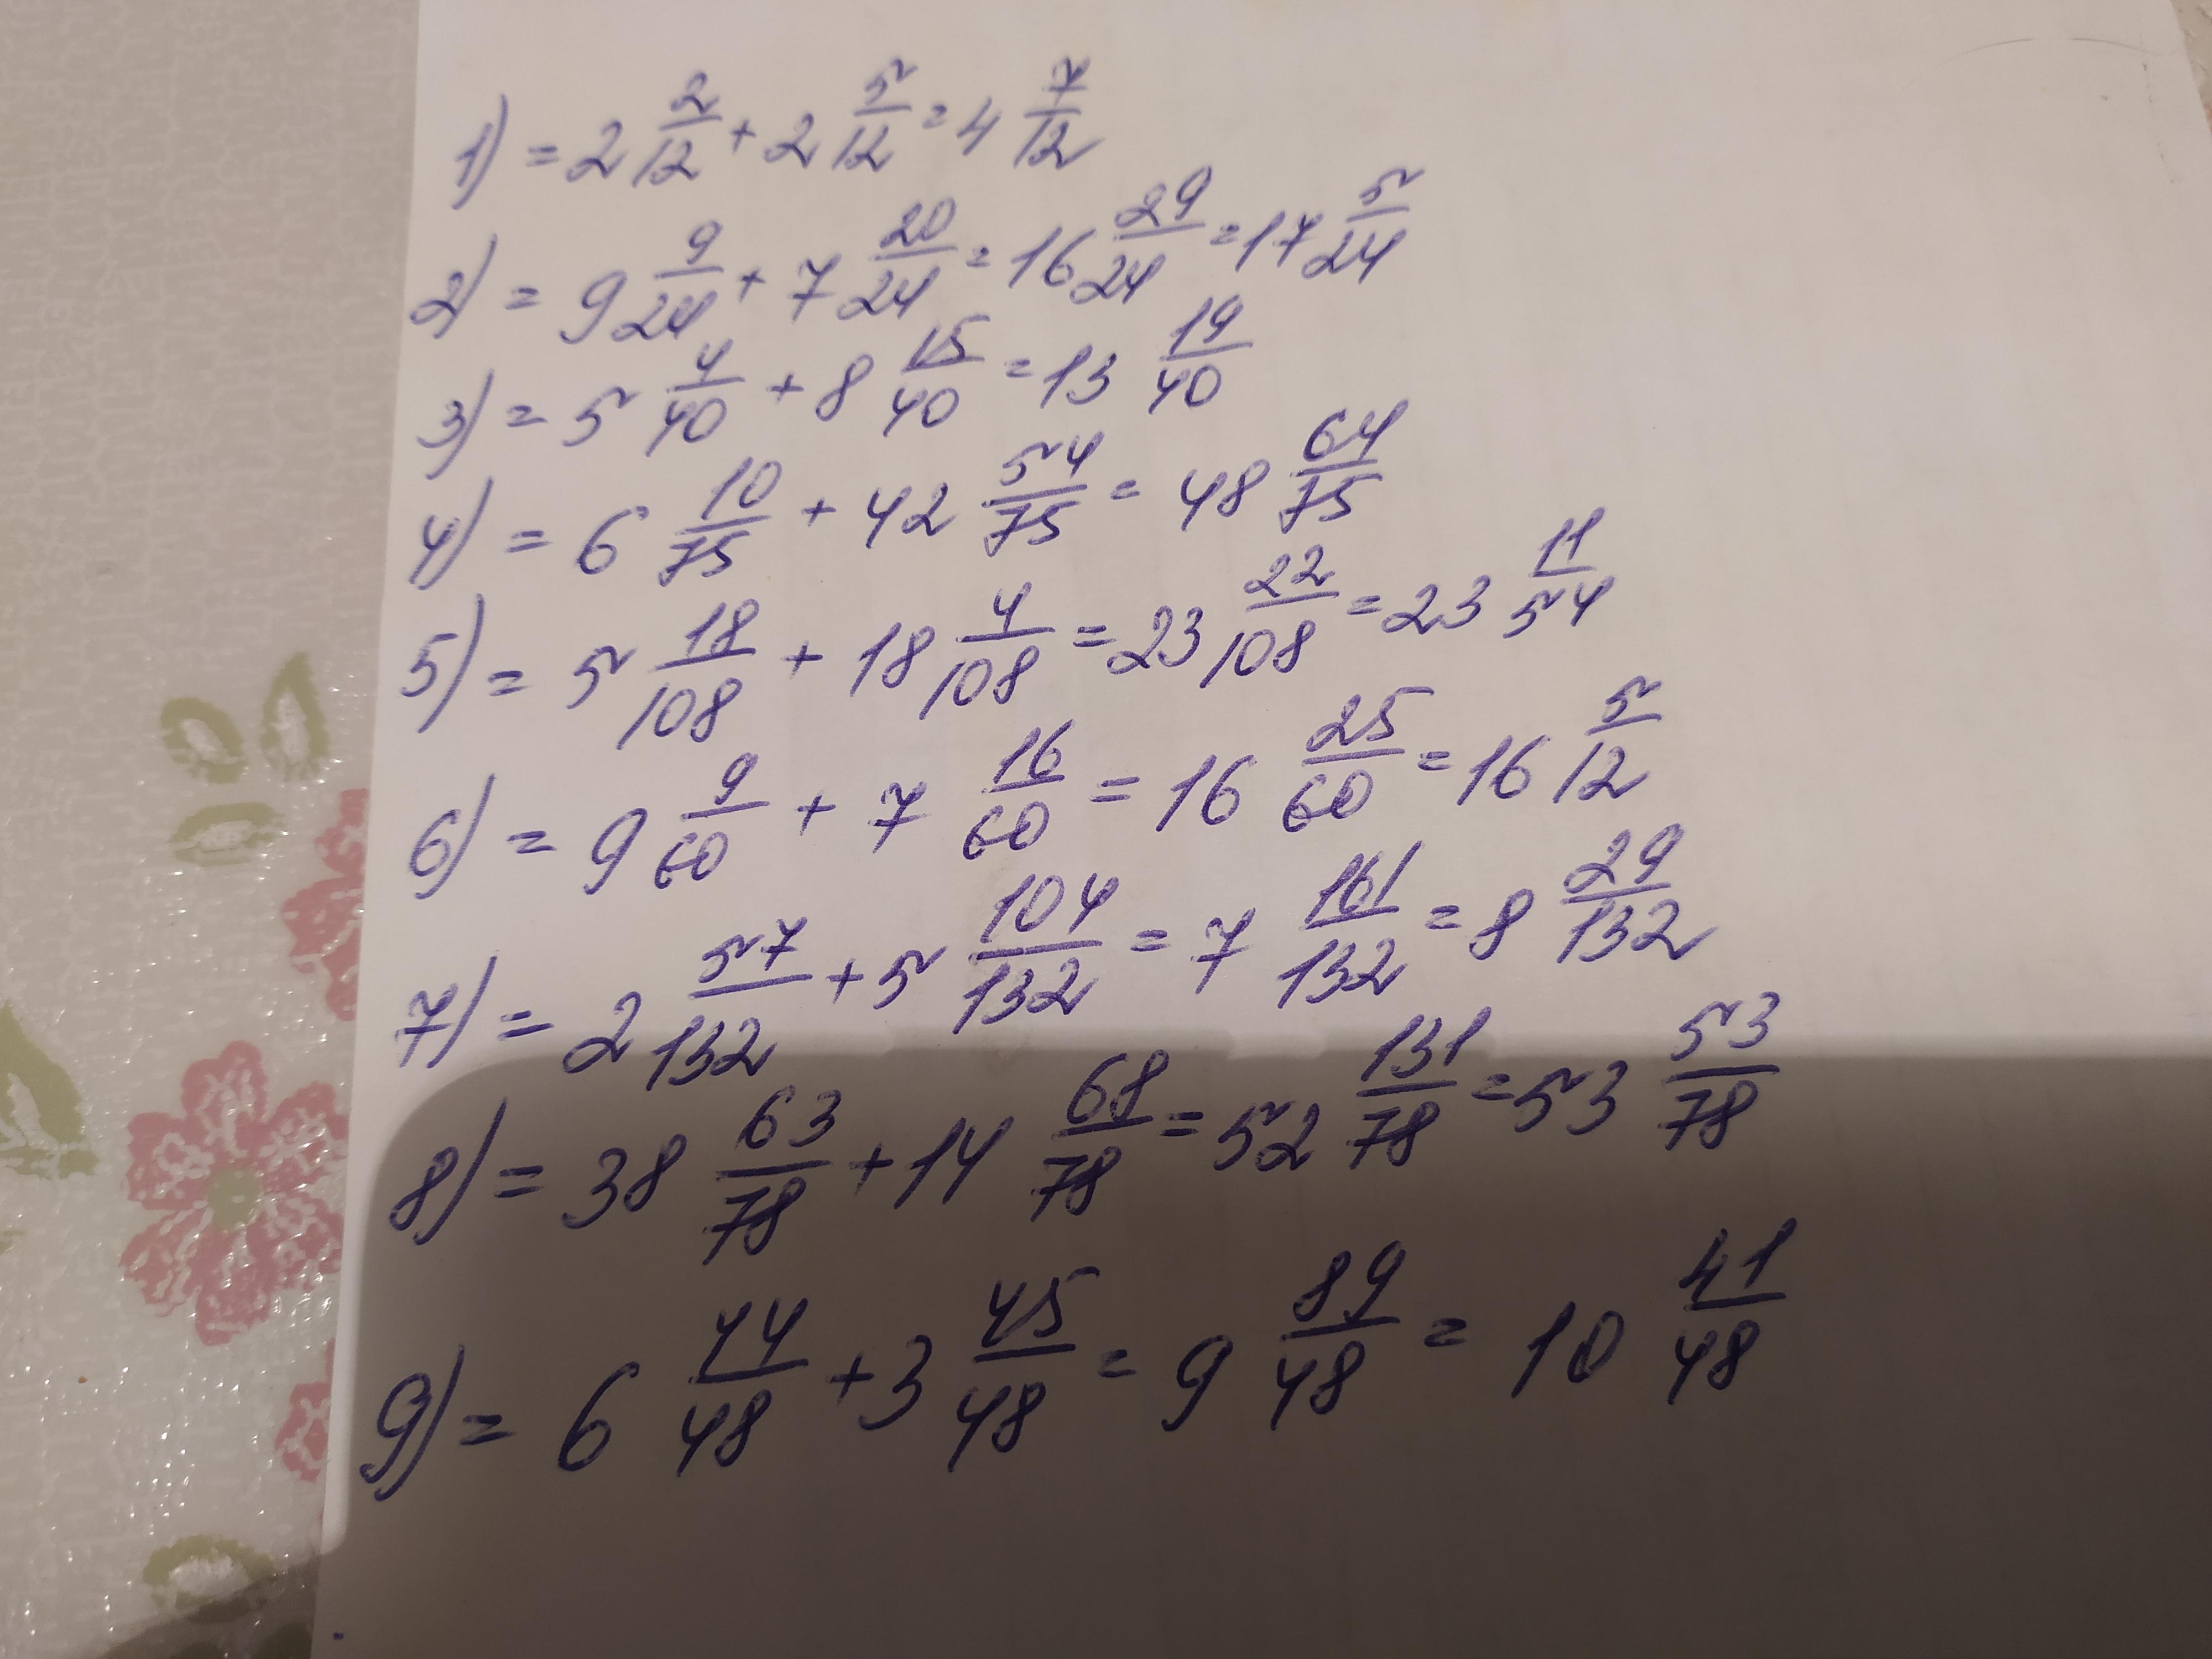 1) = 2 2/12 + 2 5/12 = 4 7/12
2) = 9 9/24 + 7 20/24 = 16 29/24 = 17 5/24
3) = 5 4/40 + 8 15/40 = 13 19/40
4) = 6 10/75 + 42 54/75 = 48 64/75
5) = 5 18/108 + 18 4/108 = 23 22/108 = 23 11/54
6) = 9 9/60 + 7 16/60 = 16 25/60 = 16 5/12
7) = 2 57/132 + 5 104/132 = 7 161/132 = 8 29/132
8) = 38 63/78 + 14 68/78 = 52 131/78 = 53 53/78
9) = 6 44/48 + 3 45/48 = 9 89/48 = 10 41/48